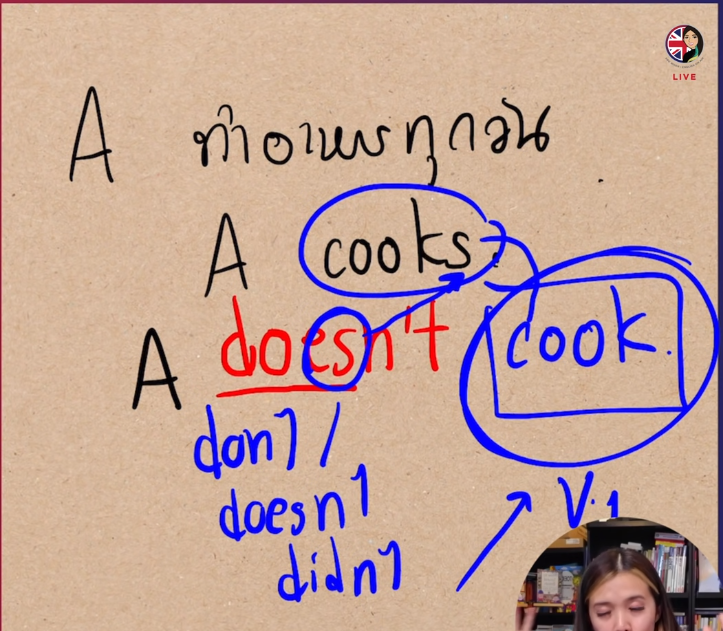 LIVE
A ทำอาหารทุกวัน
A cooks.
A doesn't cook.
don't /
doesn't
didn't
V.1